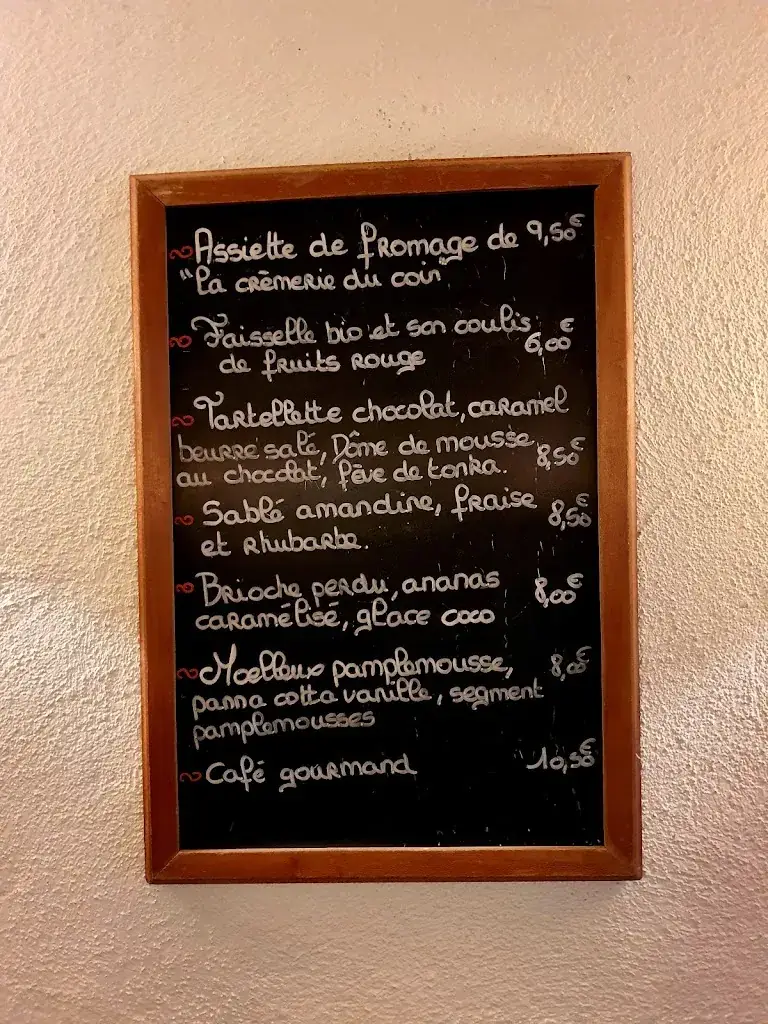 Assiette de fromage de 9,50€
"La crèmerie du coin"
Faisselle bio et son coulis
de fruits rouge 6,00€
Tartellette chocolat, caramel
beurre salé, Dôme de mousse
au chocolat, fève de tonka. 8,50€
Sablé amandine, fraise 8,50€
et rhubarbe.
Brioche perdu, ananas 8,00€
caramélisé, glace coco
Moelleux pamplemousse, 8,00€
panna cotta vanille, segment
pamplemousses
Café gourmand 10,50€